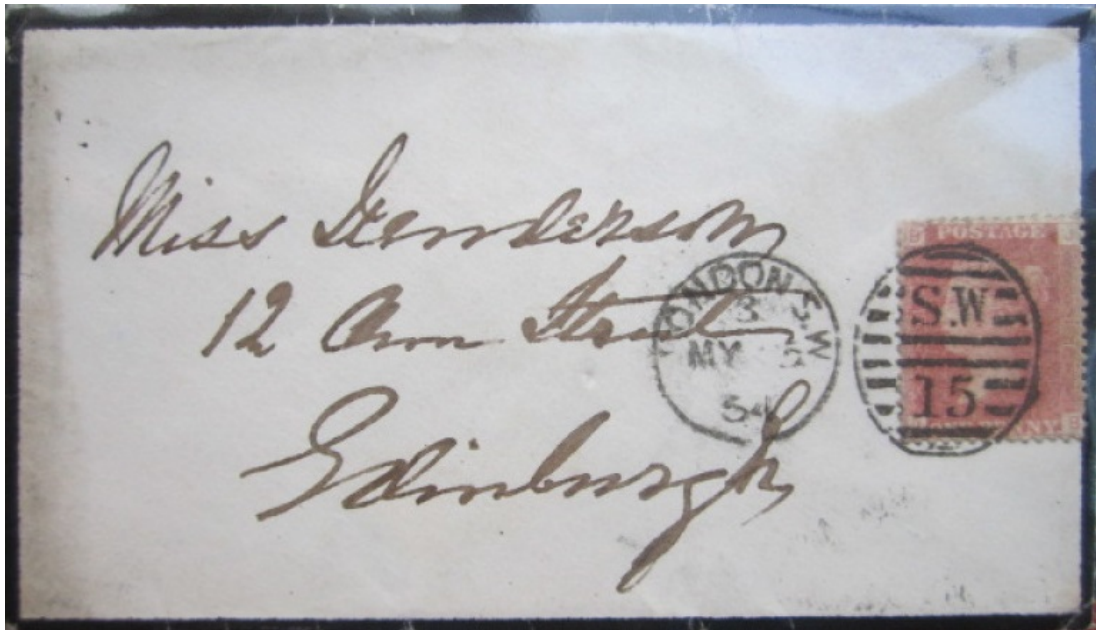 Miss Henderson
12 Ann Street
Edinburgh
LONDON S.W
3
MY 2
54
S.W
15
POSTAGE